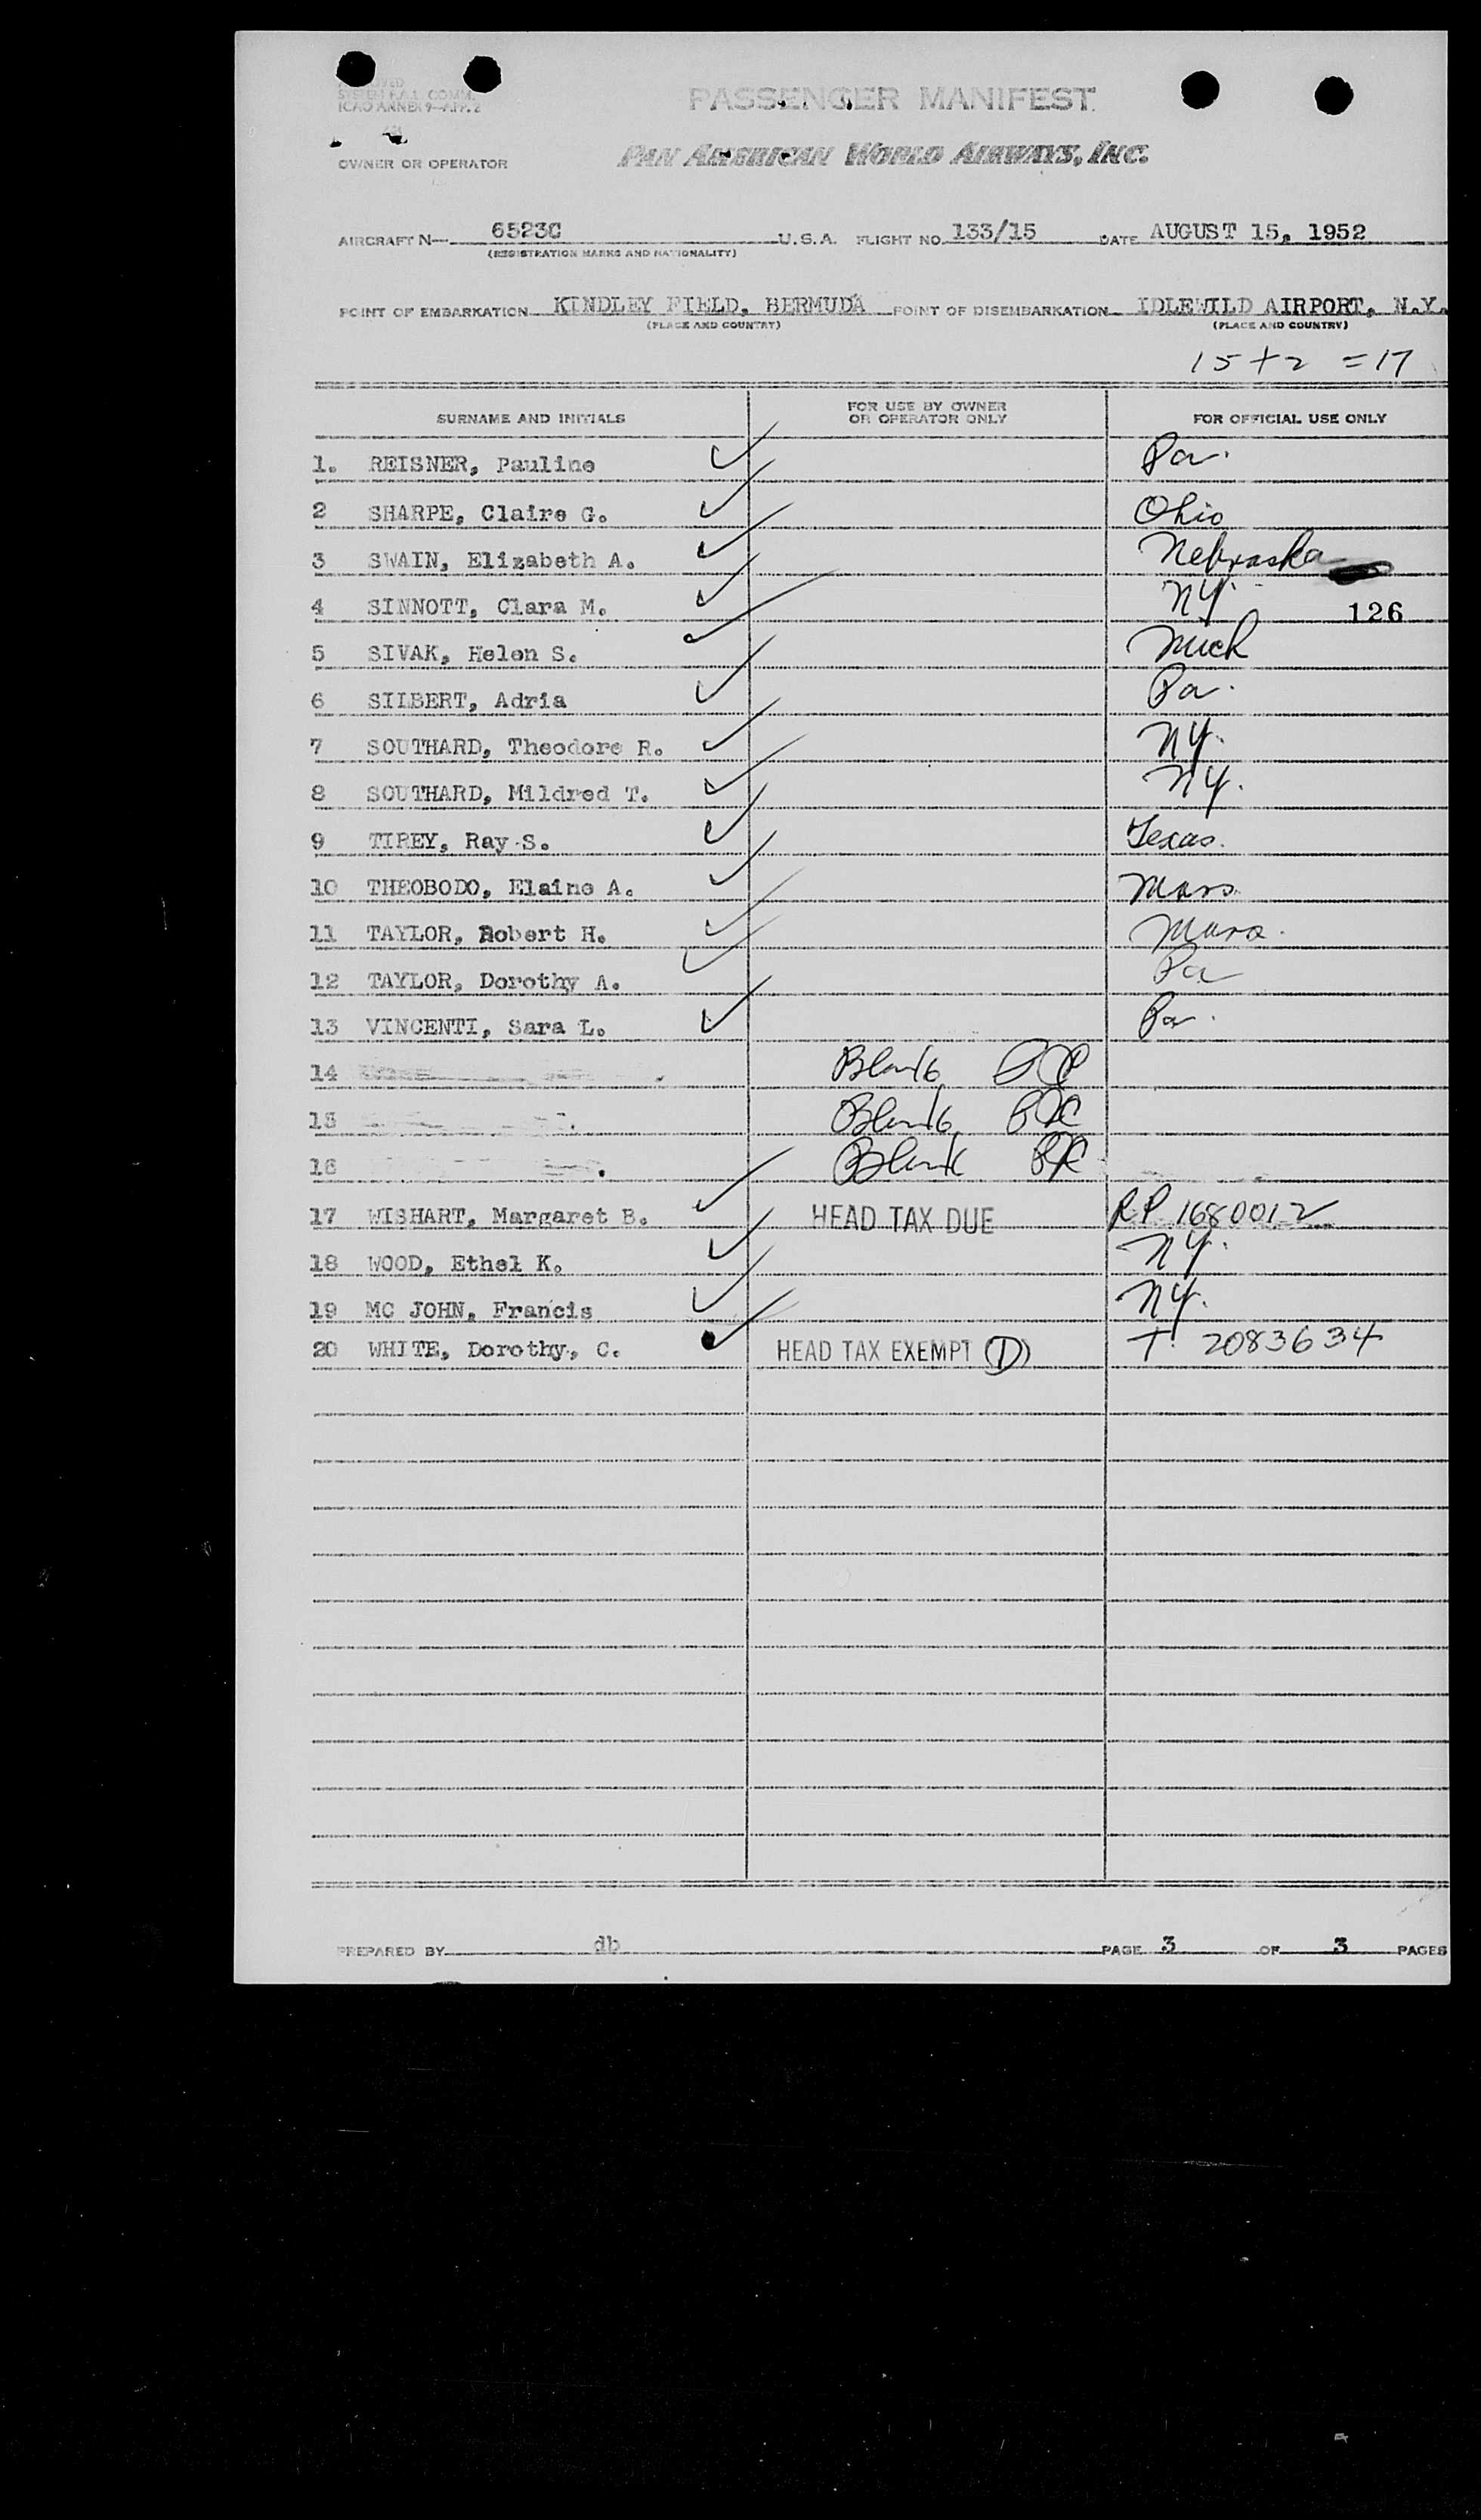 SYSTEM F.A.L. COMM.
ICAO ANNEX 9—APP. 2
PASSENGER MANIFEST
OWNER OR OPERATOR PAN AMERICAN WORLD AIRWAYS, INC.
AIRCRAFT N— 6523C U.S.A. FLIGHT NO. 133/15 DATE AUGUST 15, 1952
(REGISTRATION MARKS AND NATIONALITY)
POINT OF EMBARKATION KINDLEY FIELD, BERMUDA POINT OF DISEMBARKATION IDLEWILD AIRPORT, N.Y.
(PLACE AND COUNTRY) (PLACE AND COUNTRY)
15 + 2 = 17
SURNAME AND INITIALS FOR USE BY OWNER OR OPERATOR ONLY FOR OFFICIAL USE ONLY
1. REISNER, Pauline ✓ Pa.
2 SHARPE, Claire G. ✓ Ohio
3 SWAIN, Elizabeth A. ✓ Nebraska
4 SINNOTT, Clara M. ✓ NY. 126
5 SIVAK, Helen S. ✓ Mich
6 SILBERT, Adria ✓ Pa.
7 SOUTHARD, Theodore R. ✓ NY.
8 SOUTHARD, Mildred T. ✓ NY.
9 TIREY, Ray S. ✓ Texas.
10 THEOBODO, Elaine A. ✓ Mass
11 TAYLOR, Robert H. ✓ Mass.
12 TAYLOR, Dorothy A. ✓ Pa
13 VINCENTI, Sara L. ✓ Pa.
14 Blank
15 Blank
16 Blank
17 WISHART, Margaret B. ✓ HEAD TAX DUE RP 1680012
18 WOOD, Ethel K. ✓ NY.
19 MC JOHN, Francis ✓ NY.
20 WHITE, Dorothy, C. ✓ HEAD TAX EXEMPT (D) T. 2083634
PREPARED BY db PAGE 3 OF 3 PAGES